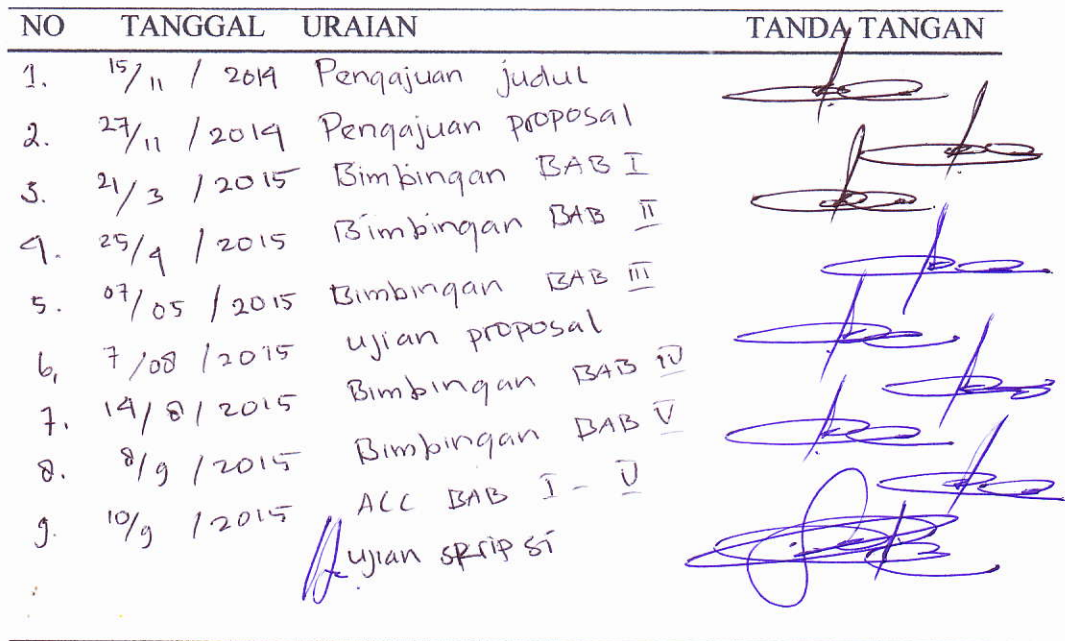 NO TANGGAL URAIAN TANDA TANGAN
1. 15/11 / 2014 Pengajuan judul
2. 27/11 / 2014 Pengajuan proposal
3. 21/3 / 2015 Bimbingan BAB I
4. 25/4 / 2015 Bimbingan BAB II
5. 07/05 / 2015 Bimbingan BAB III
6, 7/08 / 2015 ujian proposal
7. 14/8/2015 Bimbingan BAB IV
8. 8/9 / 2015 Bimbingan BAB V
9. 10/9 / 2015 ACC BAB I - V
ujian skripsi